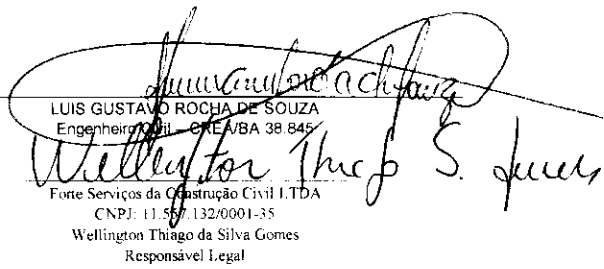 LUIS GUSTAVO ROCHA DE SOUZA
Engenheiro Civil – CREA/BA 38.845
Wellington Thiago S.
Forte Serviços da Construção Civil LTDA
CNPJ: 11.557.132/0001-35
Wellington Thiago da Silva Gomes
Responsável Legal